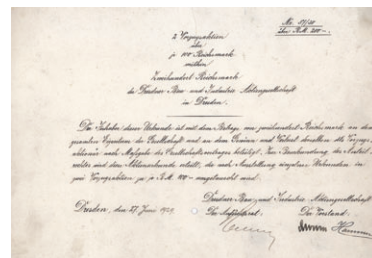 über R.M. 200.-
2 Vorzugsaktien
über
je 100 Reichsmark
mithin
Zweihundert Reichsmark
der Dresdner Bau- und Industrie Aktiengesellschaft
in Dresden.
Der Inhaber dieser Urkunde ist mit dem Betrage von zweihundert Reichsmark an dem
gesamten Eigentum der Gesellschaft und an dem Gewinn und Verlust derselben als Vorzugs-
aktionär nach Maßgabe des Gesellschaftsvertrages beteiligt.
über wird diese Aktienurkunde erteilt, die nach Ausstellung einzelner Urkunden in
zwei Vorzugsaktien zu je R.M. 100.- umgetauscht wird.
Dresdner Bau- und Industrie Aktiengesellschaft
Dresden, den 27. Juni 1929. Der Aufsichtsrat: Der Vorstand: